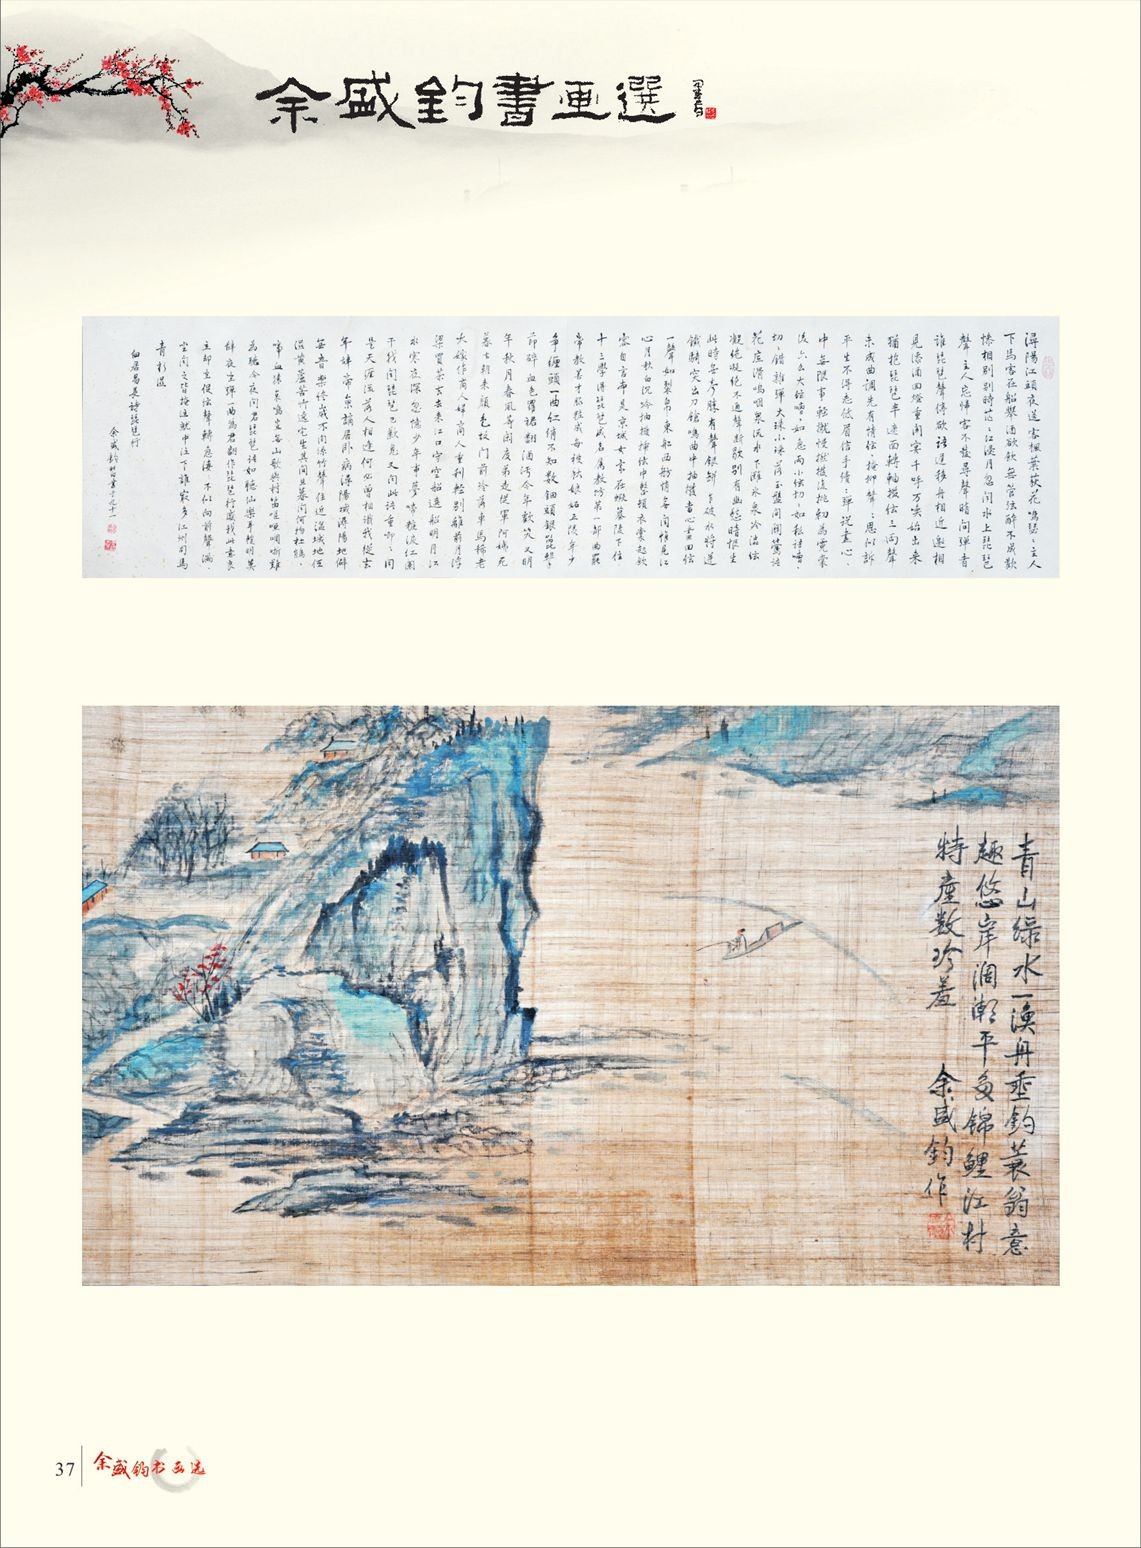 余盛鈞書画選
潯陽江頭夜送客楓葉荻花鳴瑟〻主人
下馬客在船舉酒欲飲無管弦醉不成歡
慘相別別時茫〻江浸月忽聞水上琵琶
聲主人忘歸客不發尋聲暗問彈者
誰琵琶聲停欲語遲移舟相近邀相
見添酒回燈重開宴千呼万喚始出來
猶抱琵琶半遮面轉軸撥弦三两聲
未成曲調先有情弦〻掩抑聲〻思似訴
平生不得志低眉信手續〻彈說盡心
中無限事輕攏慢撚撥復挑初為霓裳
後六幺大弦嘈〻如急雨小弦切〻如私語嘈〻
切〻錯雜彈大珠小珠落玉盤間關鶯語
花底滑嗚咽泉流水下灘水泉冷澀弦
凝絕凝絕不通聲漸歇別有幽愁暗恨生
此時無聲勝有聲銀缾乍破水將迸
鐵騎突出刀鎗鳴曲中抽撥當心畫四弦
一聲如裂帛東船西舫悄無言惟見江
心月秋白沉吟抽撥插弦中整頓衣裳起歛
容自言本是京城女家在蝦蟇陵下住
十三學得琵琶成名属教坊第一部曲罷
常教善才服粧成每被秋娘妬五陵年少
爭纏頭一曲紅綃不知數鈿頭銀篦擊
節碎血色羅裙翻酒污今年歡笑又明
年秋月春風等闲度弟走從軍阿姨死
暮去朝来顏色故门前冷落車馬稀老
大嫁作商人婦商人重利輕別離前月浮
梁買茶去去来江口守空船遶船明月江
水寒夜深忽憶少年事夢啼粧淚红闌
干我聞琵琶已歎息又闻此語重唧〻同
是天涯淪落人相逢何必曾相識我從去
年辞帝京謫居卧病潯陽城潯陽地僻
無音樂終歲不闻絲竹聲住近湓城地低
濕黄蘆苦竹遶宅生其间旦暮闻何物杜鵑
啼血猿哀鳴豈無山歌與村笛嘔啞嘲哳難
為聽今夜闻君琵琶語如聽仙樂耳暫明莫
辞更坐彈一曲為君翻作琵琶行感我此言良
久立却坐促弦弦轉急淒〻不似向前聲滿
座闻之皆掩泣就中泣下誰最多江州司馬
青衫濕
白居易長詩琵琶行
青山绿水一漁舟垂釣蓑翁意
趣悠岸阔潮平多锦鯉江村
特產數珍羞
余盛鈞作
37
余盛钧书画选